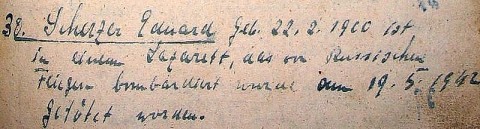 38. Scherzer Eduard geb. 22. 2. 1900 ist
in einem Lazarett, das von Russischen
Fliegern bombardiert wurde am 19. 5. 1942
getötet worden.